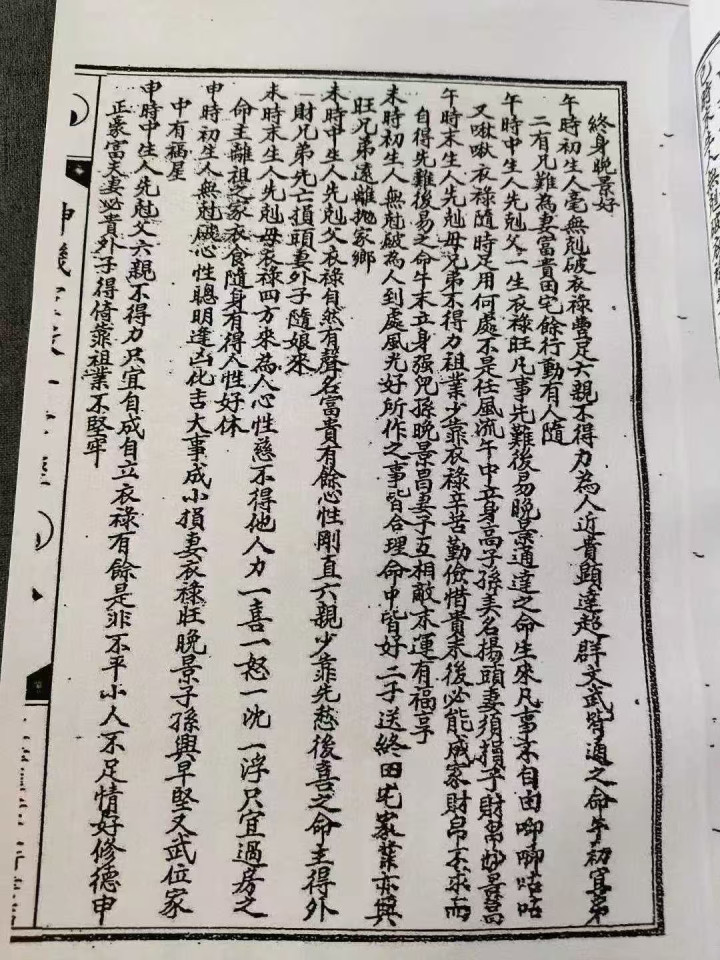 終身晚景好
午時初生人毫無剋破衣祿豐足六親不得力為人近貴顯達超群文武皆通之命午初宜弟
二有凡難為妻富貴田宅餘行動有人隨
午時中生人先剋父一生衣祿旺凡事先難後易晚景通達之命生來凡事不自由啣啣咕咕
又啾啾衣祿隨時足用何處不是任風流午中立身高子孫美名揚頭妻須損乎財帛妙景當
午時末生人先剋母兄弟不得力祖業少靠衣祿辛苦勤儉惜貴末後必能成家財帛不求而
自得先難後易之命午末立身强兒孫晚景昌妻子互相敵末運有福享
未時初生人無剋破為人到處風光好所作之事皆合理命中皆好二子送終田宅家業亦興
旺兄弟遠離抛家鄉
未時中生人先剋父衣祿自然有聲名富貴有餘心性剛直六親少靠先愁後喜之命主得外
財兄弟先亡損頭妻外子隨娘來
未時末生人先剋母衣祿四方來為人心性慈不得他人力一喜一怒一沈一浮只宜過房之
命主離祖之家衣食隨身有得人性好休
申時初生人無尅破心性聰明逢凶化吉大事成小損妻衣祿旺晚景子孫興早堅又武位家
中有福星
申時中生人先尅父六親不得力只宜自成自立衣祿有餘是非不平小人不足情好修德申
正豪富夫妻必貴外子得倚靠祖業不堅牢